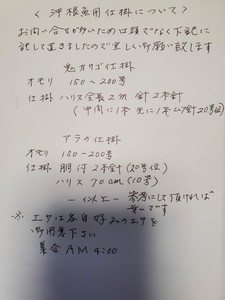 〈沖根魚用仕掛について〉
お問い合せが多いため口頭でなく下記に
記して置きましたので宜しく御願い致します
鬼カサゴ仕掛
オモリ 150～200号
仕掛 ハリス全長2m 針2本針
(中内に1本 先に1本ムツ針20号位)
アラの仕掛
オモリ 180-200号
仕掛 胴付2本針(20号位)
ハリス 70cm(10号)
参考にして頂ければ
幸いです
※ エサは各自好みのエサを
御用意下さい
集合 AM 4:00